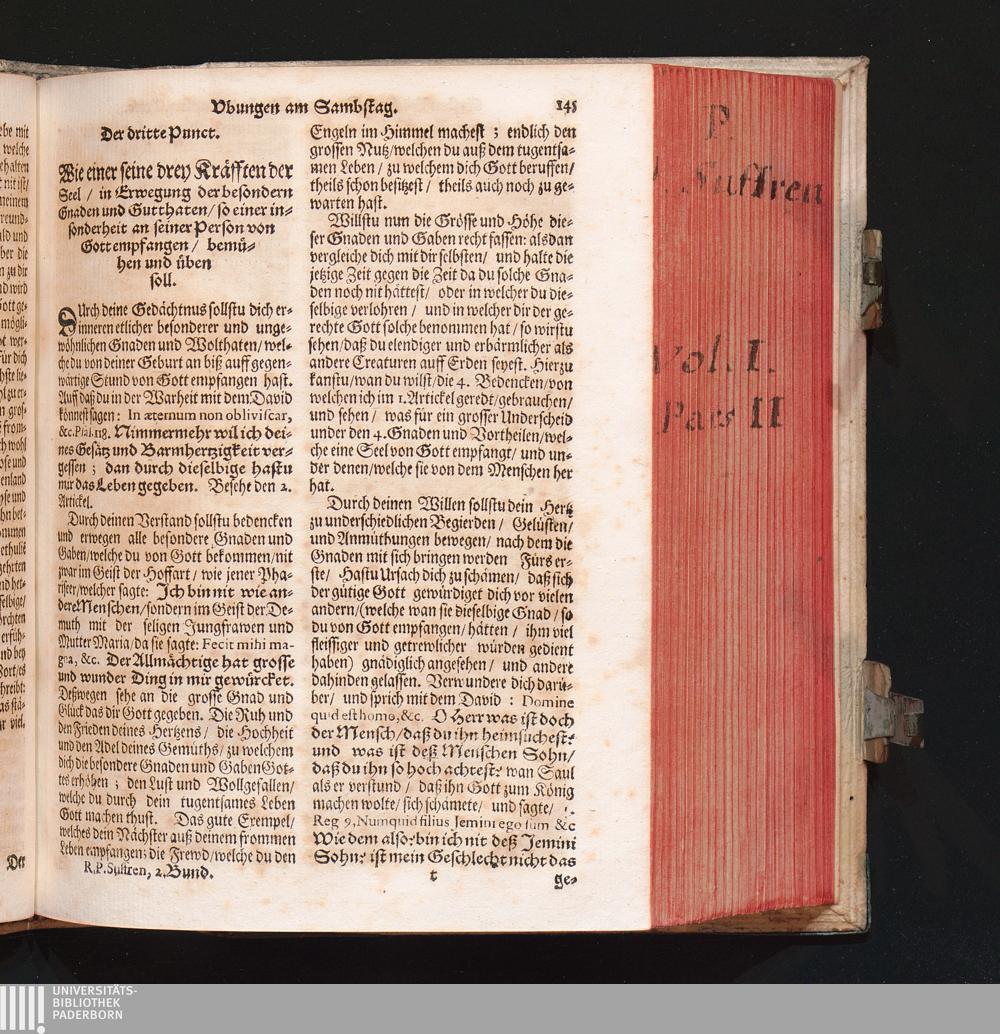 Vbungen am Sambstag.
145
Der dritte Punct.
Wie einer seine drey Kräfften der
Seel / in Erwegung der besondern
Gnaden und Gutthaten / so einer in-
sonderheit an seiner Person von
Gott empfangen / bemü-
hen und üben
soll.
DUrch deine Gedächtnus sollstu dich er-
inneren etlicher besonderer und unge-
wöhnlichen Gnaden und Wolthaten / wel-
che du von deiner Geburt an biß auff gegen-
wärtige Stund von Gott empfangen hast.
Auff daß du in der Warheit mit dem David
könnest sagen: In æternum non obliviscar,
&c. Psal. 118. Nimmermehr wil ich dei-
nes Gesätz und Barmhertzigkeit ver-
gessen ; dan durch dieselbige hastu
mir das Leben gegeben. Besehe den 2.
Artickel.
Durch deinen Verstand sollstu bedencken
und erwegen alle besondere Gnaden und
Gaben / welche du von Gott bekommen / nit
zwar im Geist der Hoffart / wie jener Pha-
riseer / welcher sagte: Ich bin nit wie an-
dere Menschen / sondern im Geist der De-
muth mit der seligen Jungfrawen und
Mutter Maria / da sie sagte: Fecit mihi ma-
gna, &c. Der Allmächtige hat grosse
und wunder Ding in mir gewürcket.
Deßwegen sehe an die grosse Gnad und
Glück das dir Gott gegeben. Die Ruh und
den Frieden deines Hertzens / die Hochheit
und den Adel deines Gemüths / zu welchem
dich die besondere Gnaden und Gaben Got-
tes erhöhen ; den Lust und Wollgefallen /
welche du durch dein tugentsames Leben
Gott machen thust. Das gute Exempel /
welches dein Nächster auß deinem frommen
Leben empfangen; die Frewd / welche du den
R.P. Suffren, 2. Bund.
Engeln im Himmel machest ; endlich den
grossen Nutz / welchen du auß dem tugentsa-
men Leben / zu welchem dich Gott beruffen /
theils schon besitzest / theils auch noch zu ge-
warten hast.
Willstu nun die Grösse und Höhe die-
ser Gnaden und Gaben recht fassen: als dan
vergleiche dich mit dir selbsten / und halte die
jetzige Zeit gegen die Zeit da du solche Gna-
den noch nit hättest / oder in welcher du die-
selbige verlohren / und in welcher dir der ge-
rechte Gott solche benommen hat / so wirstu
sehen / daß du elendiger und erbärmlicher als
andere Creaturen auff Erden seyest. Hierzu
kanstu / wan du wilst / die 4. Bedencken / von
welchen ich im 1. Artickel geredt / gebrauchen /
und sehen / was für ein grosser Underscheid
under den 4. Gnaden und Vortheilen / wel-
che eine Seel von Gott empfangt / und un-
der denen / welche sie von dem Menschen her
hat.
Durch deinen Willen sollstu dein Hertz
zu underschiedlichen Begierden / Gelüsten /
und Anmüthungen bewegen / nach dem die
Gnaden mit sich bringen werden Fürs er-
ste / Hastu Ursach dich zu schämen / daß sich
der gütige Gott gewürdiget dich vor vielen
andern / (welche wan sie dieselbige Gnad / so
du von Gott empfangen / hätten / ihm viel
fleissiger und getrewlicher würden gedient
haben) gnädiglich angesehen / und andere
dahinden gelassen. Verwundere dich darü-
ber / und sprich mit dem David : Domine
quid est homo, &c. O Herr was ist doch
der Mensch / daß du ihn heimsuchest?
und was ist deß Menschen Sohn /
daß du ihn so hoch achtest? wan Saul
als er verstund / daß ihn Gott zum König
machen wolte / sich schämete / und sagte / 1.
Reg 9, Numquid filius Jemini ego sum &c
Wie dem also? bin ich nit deß Jemini
Sohn? ist mein Geschlecht nicht das
t
ge-
Der
P.
Suffren
Vol. I.
Pars II
UNIVERSITÄTS-
BIBLIOTHEK
PADERBORN